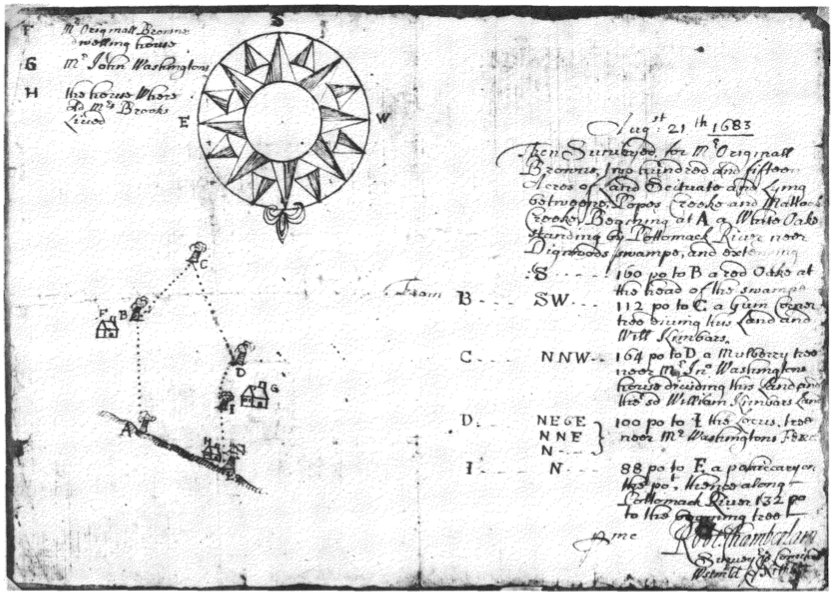 F Mr Originall Browns
dwelling house
G Mr John Washingtons
H the house Where
Mrs Brooks
Lived
S
E
W
Augst 21th 1683
Then Surveyed for Mr Originall
Browne, two hundred and fifteen
Acres of Land Scituate and Lying
betweene Popes Creeke and Mattox
Creeke, Begining at A a White Oake
standing by Pottomack River neer
Digwoods swampe, and extending
From
S 160 po to B a red Oake at
the head of the swampe
B SW 112 po to C a Gum Corner
tree diuiding this Land and
Will Kimbars.
C NNW 164 po to D a Mulberry tree
neer Mr Jno Washingtons
house diuiding this Land and
the sd William Kimbars Land
D NE & E 100 po to I the Locus, tree
NNE neer Mr Washingtons
N
I N 88 po to E a
the po, thence along
Pottomack River 132 po
to the begining tree
me
Robt Chamberlain
C
F
B
D
G
I
A
H
E